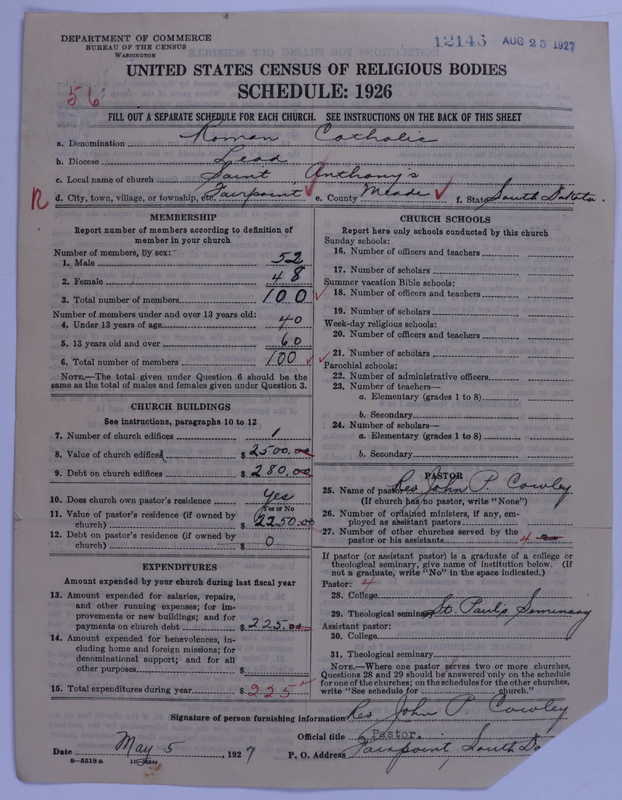 DEPARTMENT OF COMMERCE
BUREAU OF THE CENSUS
WASHINGTON
12146 AUG 25 1927
UNITED STATES CENSUS OF RELIGIOUS BODIES
SCHEDULE: 1926
56
FILL OUT A SEPARATE SCHEDULE FOR EACH CHURCH. SEE INSTRUCTIONS ON THE BACK OF THIS SHEET
a. Denomination Roman Catholic
b. Diocese Lead
c. Local name of church Saint Anthony's
R d. City, town, village, or township, etc. Fairpoint e. County Meade f. State South Dakota.
MEMBERSHIP
Report number of members according to definition of
member in your church
Number of members, by sex:
1. Male 52
2. Female 48
3. Total number of members 100
Number of members under and over 13 years old:
4. Under 13 years of age 40
5. 13 years old and over 60
6. Total number of members 100
NOTE.—The total given under Question 6 should be the
same as the total of males and females given under Question 3.
CHURCH BUILDINGS
See instructions, paragraphs 10 to 12
7. Number of church edifices 1
8. Value of church edifices $ 2500.00
9. Debt on church edifices $ 280.00
10. Does church own pastor's residence Yes
Yes or No
11. Value of pastor's residence (if owned by
church) $ 2250.00
12. Debt on pastor's residence (if owned by
church) $ 0
EXPENDITURES
Amount expended by your church during last fiscal year
13. Amount expended for salaries, repairs,
and other running expenses; for im-
provements or new buildings; and for
payments on church debt $ 225.00
14. Amount expended for benevolences, in-
cluding home and foreign missions; for
denominational support; and for all
other purposes $
15. Total expenditures during year $ 225
CHURCH SCHOOLS
Report here only schools conducted by this church
Sunday schools:
16. Number of officers and teachers
17. Number of scholars
Summer vacation Bible schools:
18. Number of officers and teachers
19. Number of scholars
Week-day religious schools:
20. Number of officers and teachers
21. Number of scholars
Parochial schools:
22. Number of administrative officers
23. Number of teachers—
a. Elementary (grades 1 to 8)
b. Secondary
24. Number of scholars—
a. Elementary (grades 1 to 8)
b. Secondary
PASTOR
25. Name of pastor Rev John P. Cowley
(If church has no pastor, write "None")
26. Number of ordained ministers, if any, em-
ployed as assistant pastors
27. Number of other churches served by the
pastor or his assistants 4
If pastor (or assistant pastor) is a graduate of a college or
theological seminary, give name of institution below. (If
not a graduate, write "No" in the space indicated.)
Pastor: 4
28. College
29. Theological seminary St. Pauls Seminary
Assistant pastor:
30. College
31. Theological seminary
NOTE.—Where one pastor serves two or more churches,
Questions 28 and 29 should be answered only on the schedule
for one of the churches; on the schedules for the other churches,
write "See schedule for church."
Signature of person furnishing information Rev John P Cowley
Official title Pastor.
Date May 5, 1927 P. O. Address Fairpoint, South
8-5518 a